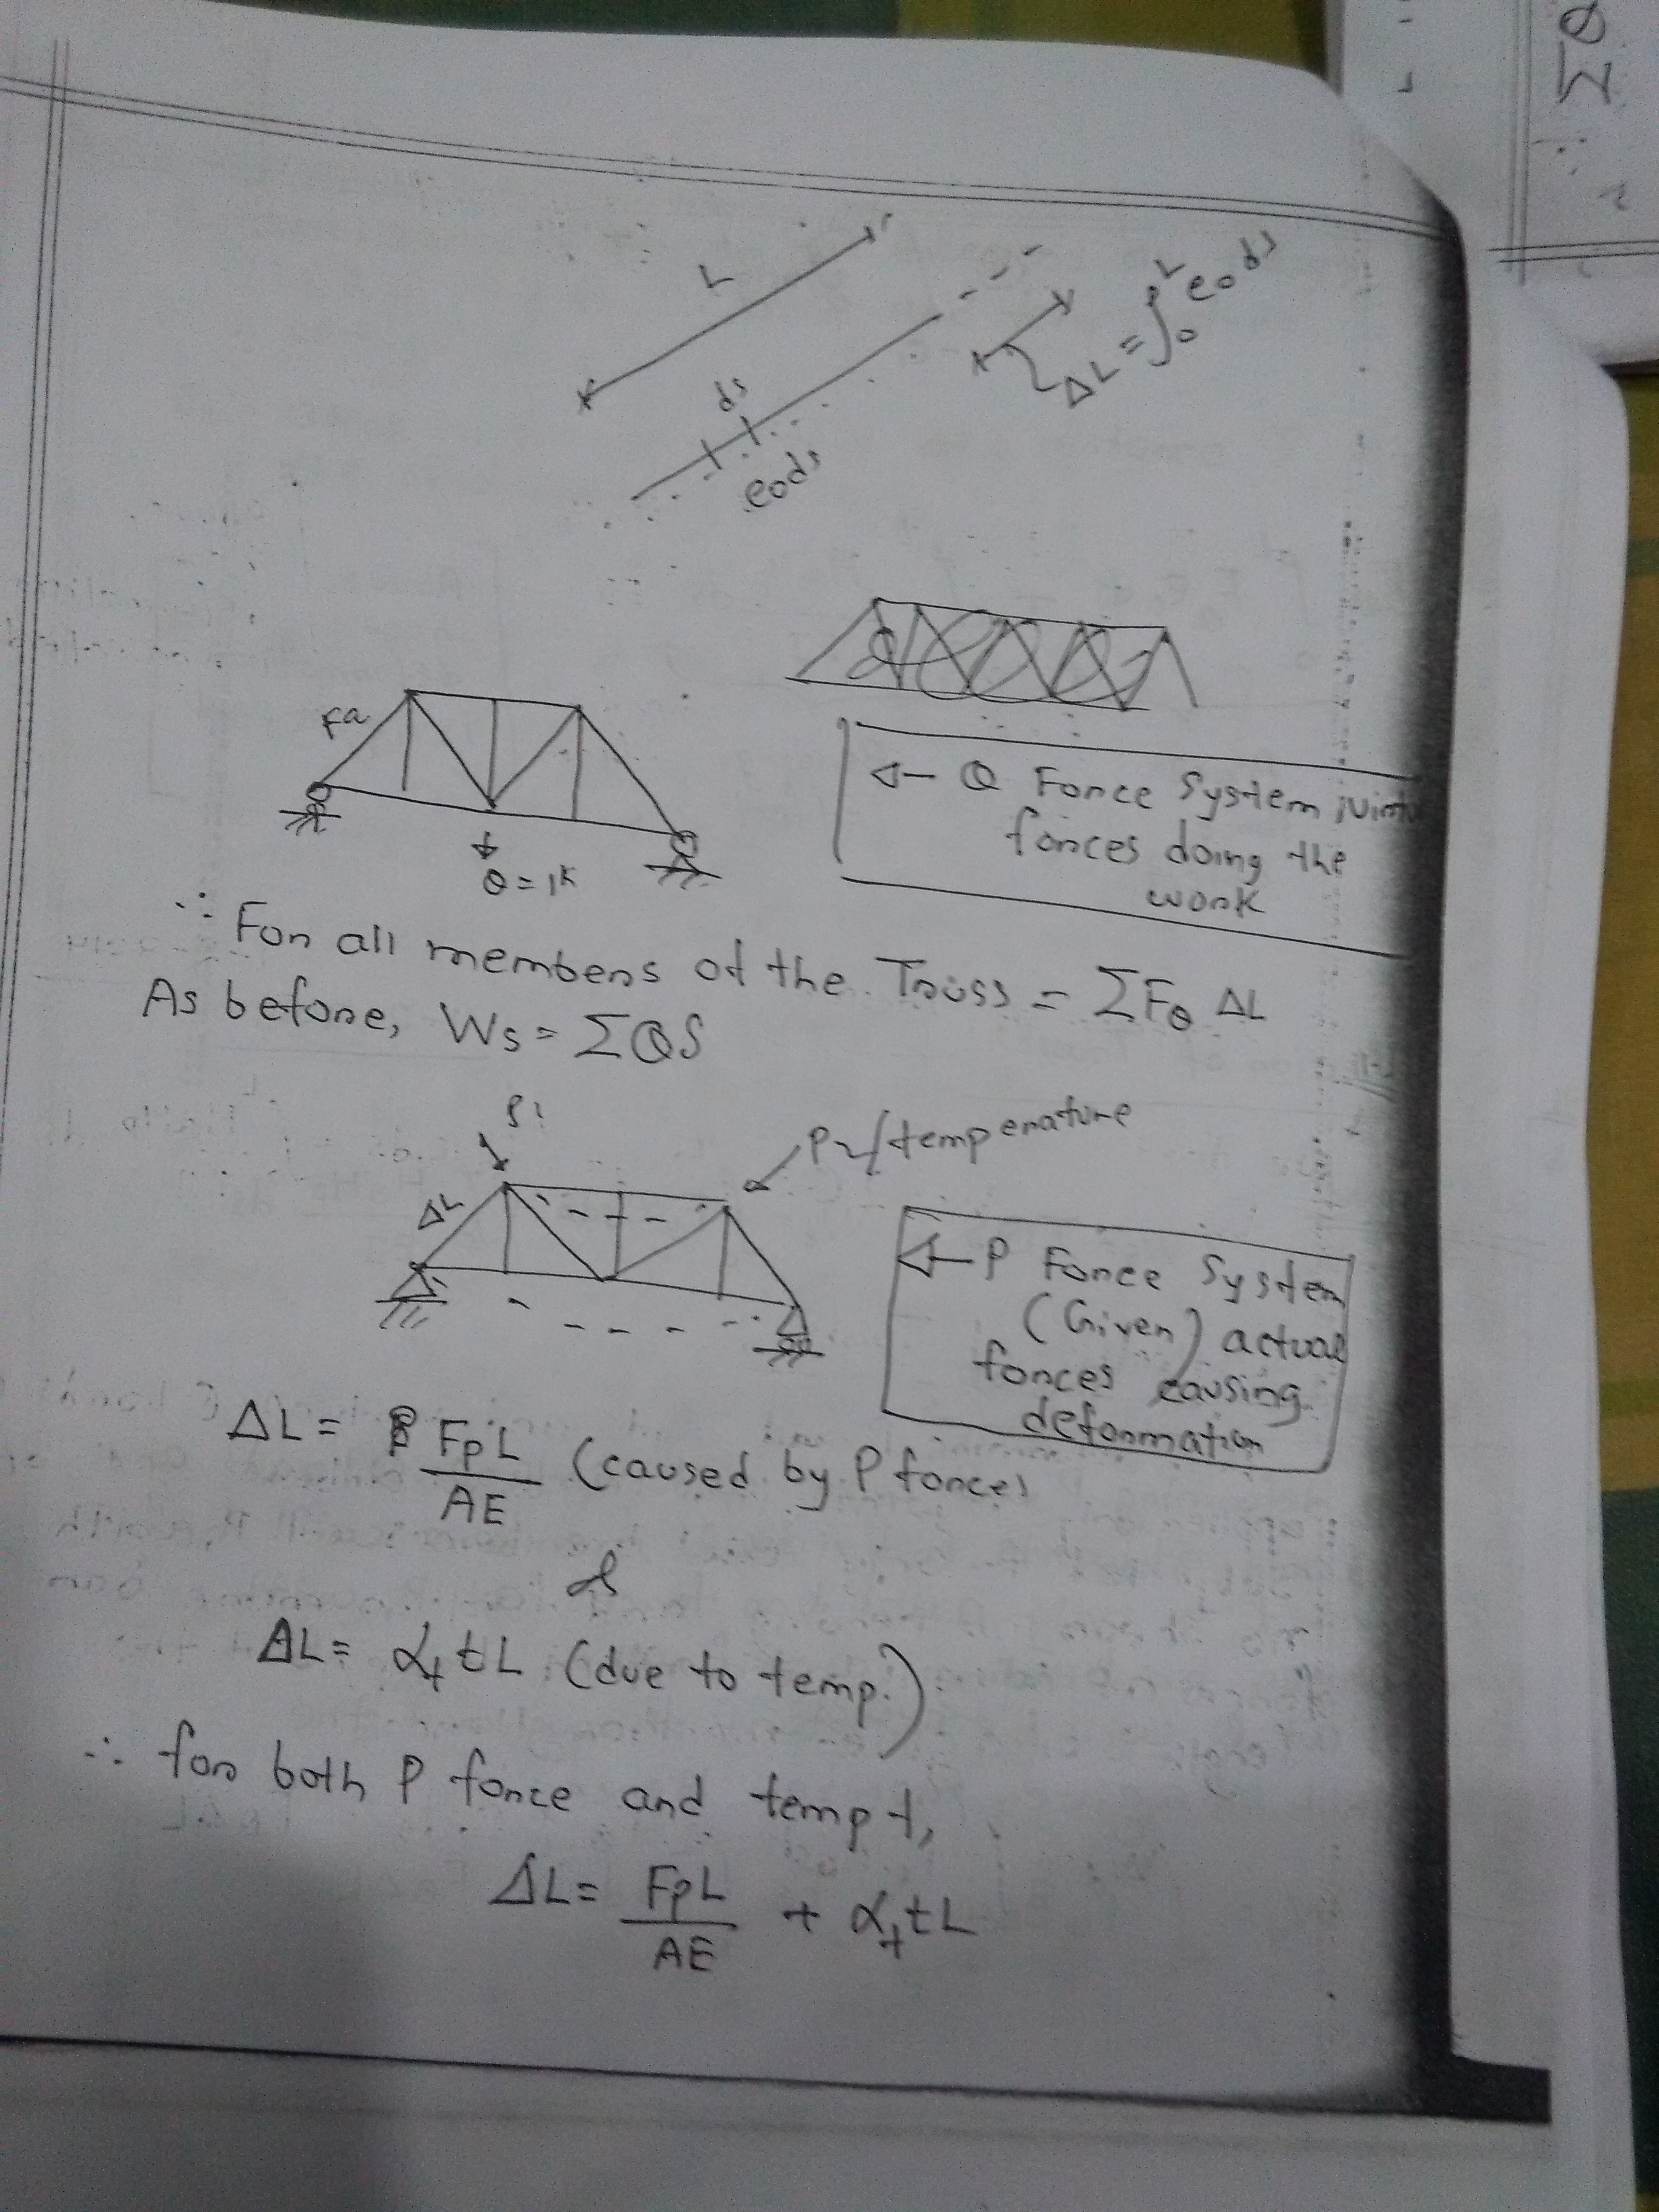 L
ds
e₀ds
ΔL = ∫₀ᴸ e₀ ds
FQ
Q = 1k
← Q Force System
forces doing the
work
∴ For all members of the Truss = ΣF_Q ΔL
As before, Ws = ΣQδ
P1
P2/temperature
ΔL
← P Force System
(Given) actual
forces causing
deformation
ΔL = FpL/AE (caused by P forces
&
ΔL = αt t L (due to temp.)
∴ for both P force and temp t,
ΔL = FpL/AE + αt t L
ΣQ